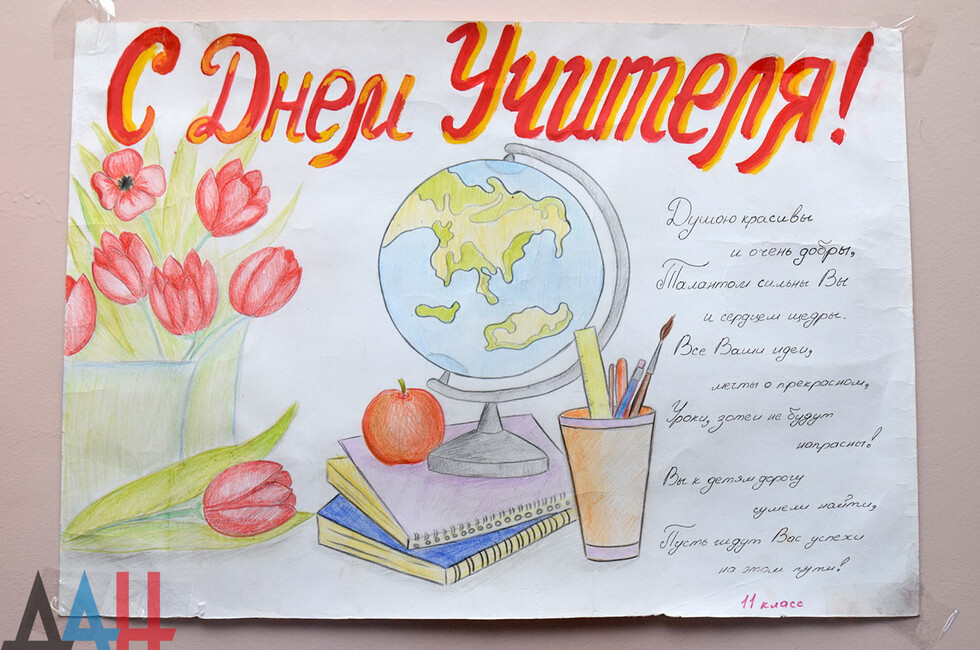 С Днем Учителя!
Душою красивы
и очень добры,
Талантом сильны Вы
и сердцем щедры.
Все Ваши идеи,
мечты о прекрасном,
Уроки, затеи не будут
напрасны!
Вы к детям дорогу
сумели найти,
Пусть ждут Вас успехи
на этом пути!
11 класс
ДАН